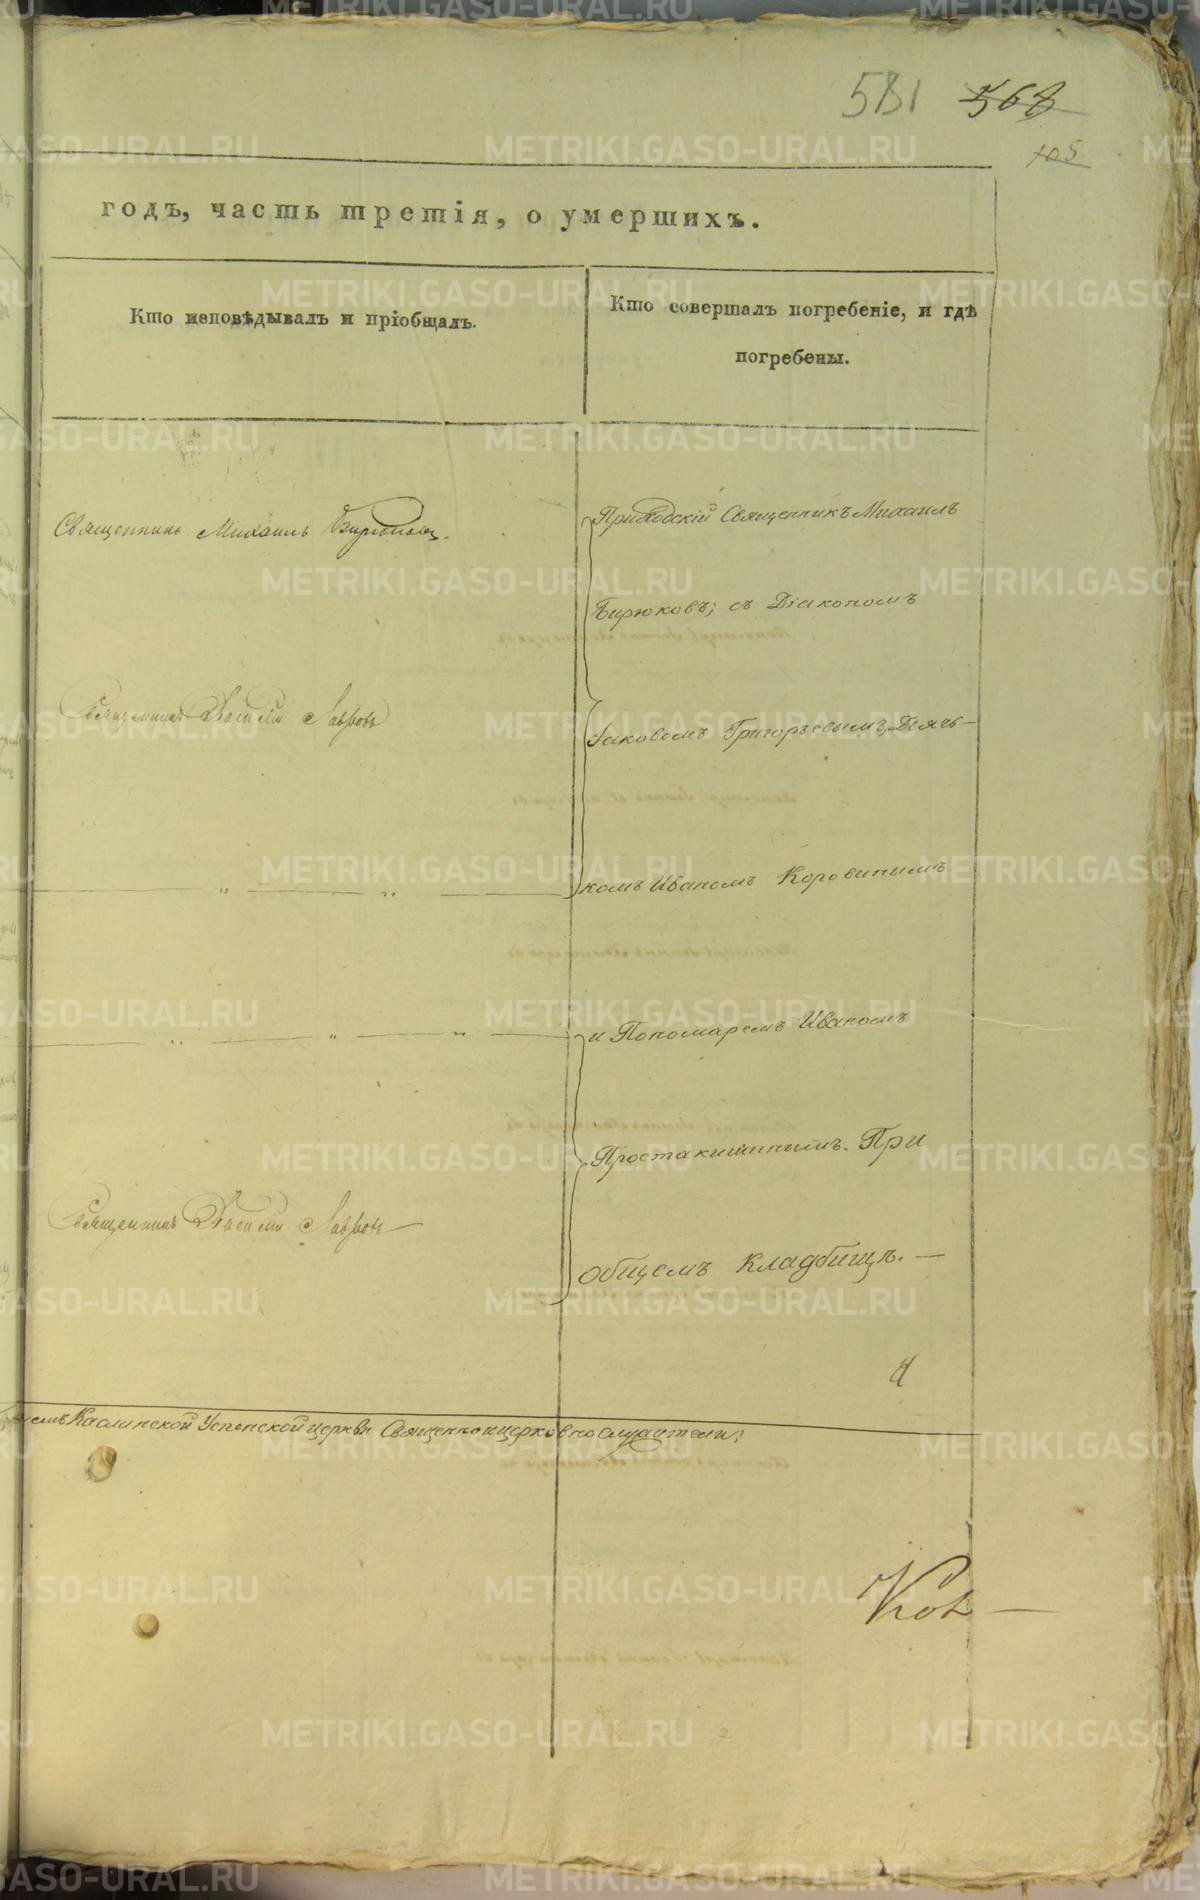 581 568
105
годъ, часть третія, о умершихъ.
Кто исповѣдывалъ и пріобщалъ.
Кто совершалъ погребеніе, и гдѣ
погребены.
Священникъ Михаилъ Бирюковъ.
Приходскій Священникъ Михаилъ
Бирюковъ; съ Діакономъ
Священникъ Василій Лавровъ
Іаковомъ Григорьевымъ, Дьячь-
комъ Иваномъ Коровинымъ
и Пономаремъ Иваномъ
Простакишинымъ. При
Священникъ Василій Лавровъ
общемъ кладбищѣ.
Каслинской Успенской церкви Священноицерковнослужители:
METRIKI.GASO-URAL.RU